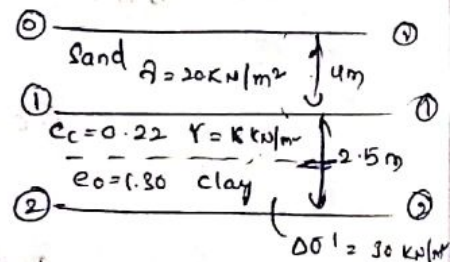 0 0
Sand γ = 20 KN/m² 4m
1 1
Cc = 0.22 γ = 18 KN/m²
2.5 m
e0 = 1.30 clay
2 2
Δσ' = 30 KN/m²